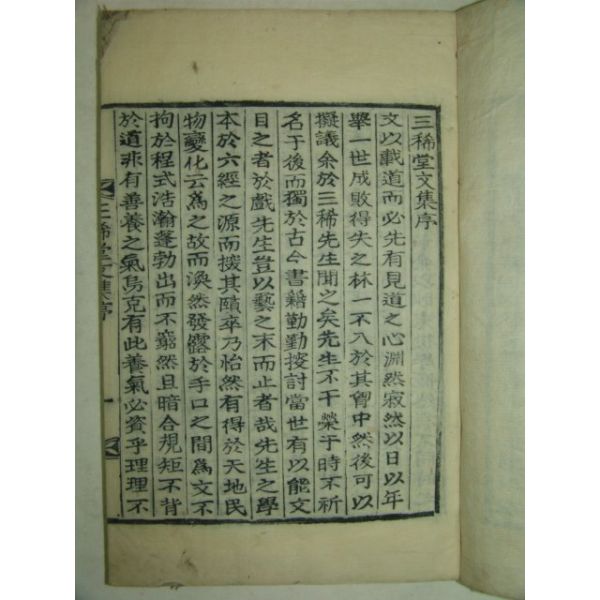 三稀堂文集序
文以載道而必先有見道之心淵然寂然以日以年
舉一世成敗得失之林一不入於其胷中然後可以
擬議余於三稀先生聞之矣先生不干榮于時不祈
名于後而獨於古今書籍勤勤披討當世有以能文
目之者於戲先生豈以藝之末而止者哉先生之學
本於六經之源而探其賾卒乃怡然有得於天地民
物變化云爲之故而渙然發露於手口之間爲文不
拘於程式浩瀚蓬勃出而不窮然且暗合規矩不背
於道非有善養之氣烏克有此養氣必資乎理理不
三稀堂文集序
一